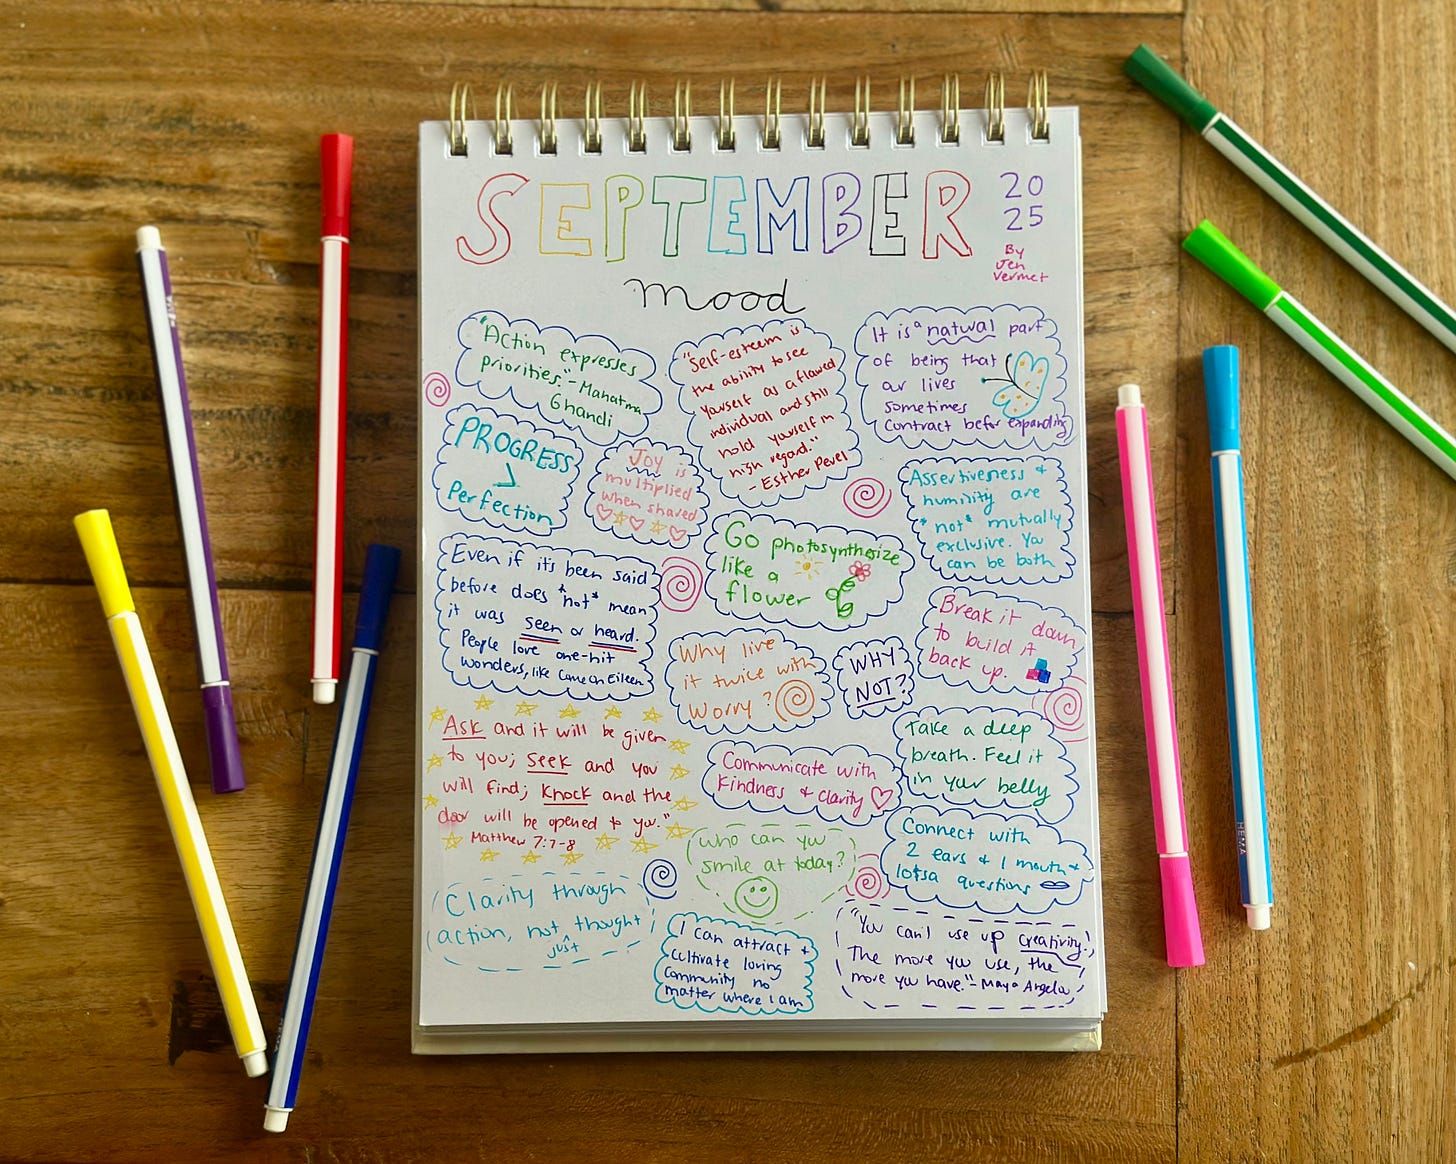 SEPTEMBER
20
25
By
Jen
Vermet
mood
"Action expresses
priorities." - Mahatma
Ghandi
"Self-esteem is
the ability to see
yourself as a flawed
individual and still
hold yourself in
high regard."
- Esther Perel
It is a natural part
of being that
our lives
sometimes
contract before expanding
PROGRESS
>
Perfection
Joy is
multiplied
when shared
Assertiveness +
humility are
*not* mutually
exclusive. You
can be both
Go photosynthesize
like a
flower
Even if it's been said
before does *not* mean
it was seen or heard.
People love one-hit
wonders, like Come On Eileen
Why live
it twice with
worry?
WHY
NOT?
Break it down
to build it
back up.
Ask and it will be given
to you; seek and you
will find; knock and the
door will be opened to you."
Matthew 7:7-8
Communicate with
kindness + clarity
Take a deep
breath. Feel it
in your belly
who can you
smile at today?
Connect with
2 ears + 1 mouth +
lotsa questions
Clarity through
action, not just thought
I can attract +
cultivate loving
community no
matter where I am
"You can't use up creativity.
The more you use, the
more you have." - Maya Angelou
HEMA